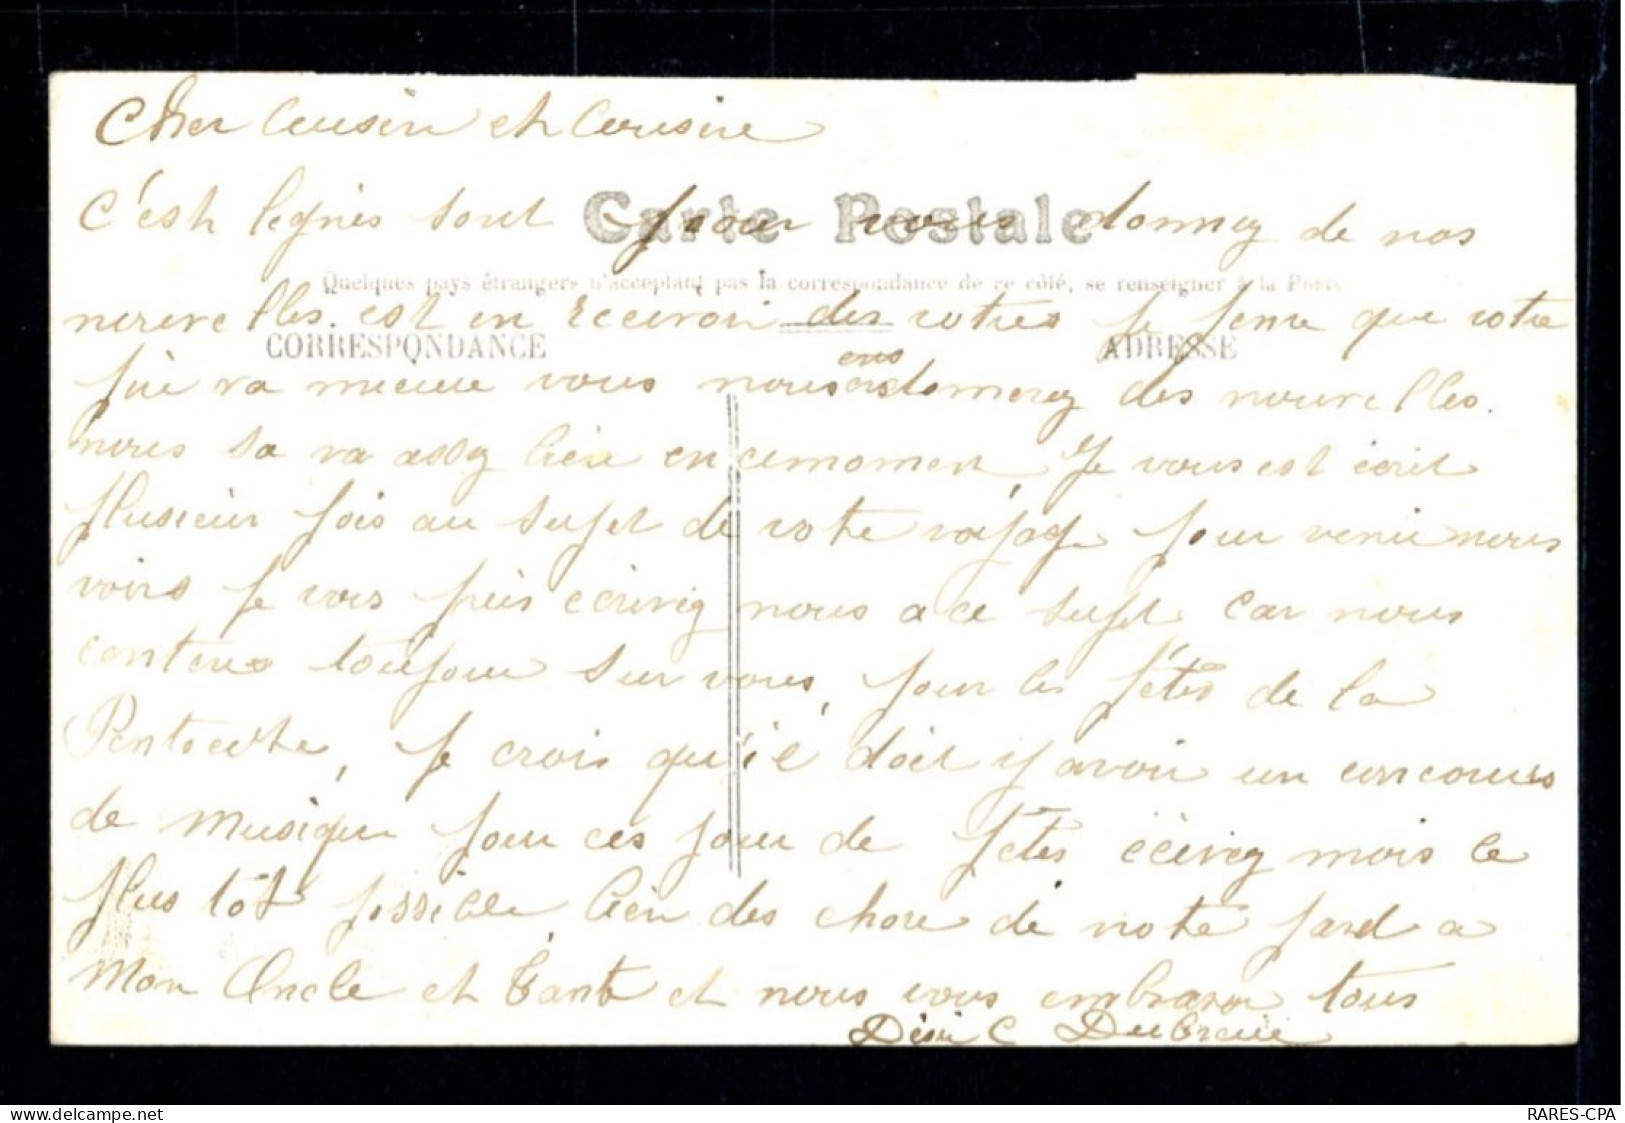 Cher Cousin et Cousine
Carte Postale
C'est legnés sont pour vous donney de nos
Quelques pays étrangers n'acceptant pas la correspondance de ce côté, se renseigner à la Poste
nouvelles est en recevoir des votres Je pense que votre
CORRESPONDANCE
ADRESSE
ens
va mieux vous nous donnerez des nouvelles.
nous sa va assez bien en cemoment, Je vous est écrit
plusieur fois au sujet de vote voyage pour venir nous
voire Je vous pries écrivez nous a ce sujet car nous
contons toujour sur vous, pour les fêtes de la
Pentecote, Je crois qu'il doit y avoir un concours
de musique pour ces jour de fêtes écrivez mois le
plus tôt possible bien des chose de note pard a
Mon Oncle et Tante et nous vous embrasson tous
C
delcampe.net
RARES-CPA